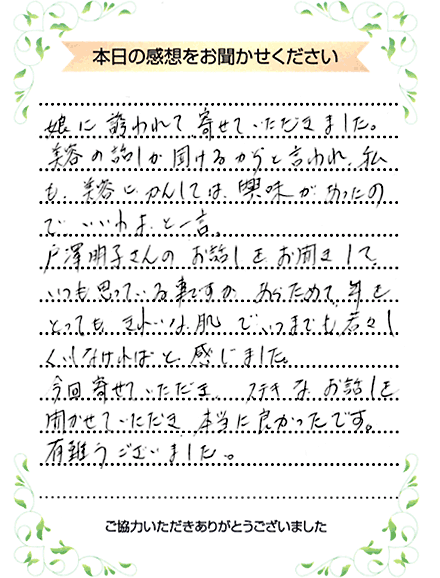 本日の感想をお聞かせください
娘に誘われて、寄せていただきました。
美容の話しが聞けるからと言われ、私
も、美容にかんしては、興味があったの
で いいわよ と一言。
戸澤明子さんの お話しをお聞きして、
いつも思っている事ですが あらためて、年を
とっても、きれいな肌 で いつまでも、若々し
くいなければと、感じました。
今回寄せていただき、 ステキな お話しを
聞かせていただき、本当に良かったです。
有難うございました。
ご協力いただきありがとうございました